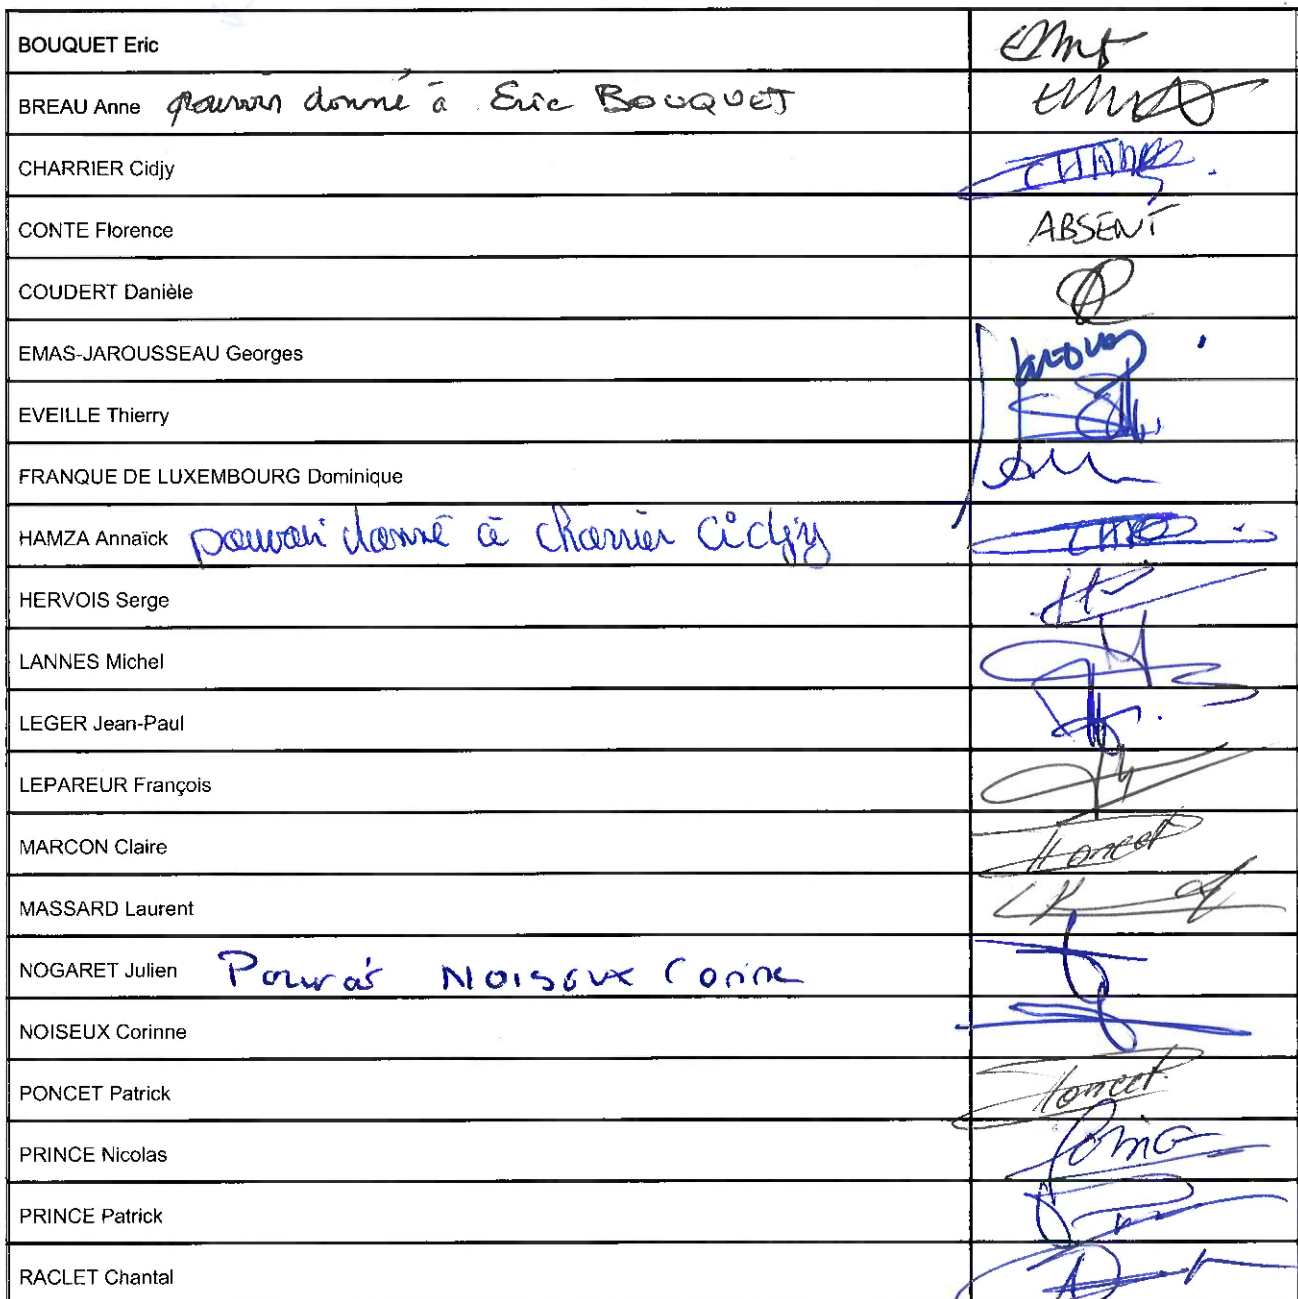 BOUQUET Eric
BREAU Anne pouvoir donné à Eric BOUQUET
CHARRIER Cidjy
CONTE Florence ABSENT
COUDERT Danièle
EMAS-JAROUSSEAU Georges
EVEILLE Thierry
FRANQUE DE LUXEMBOURG Dominique
HAMZA Annaïck pouvoir donné à charrier Cidjy
HERVOIS Serge
LANNES Michel
LEGER Jean-Paul
LEPAREUR François
MARCON Claire Poncet
MASSARD Laurent
NOGARET Julien Pouvoir NOISEUX Corinne
NOISEUX Corinne
PONCET Patrick Poncet
PRINCE Nicolas
PRINCE Patrick
RACLET Chantal